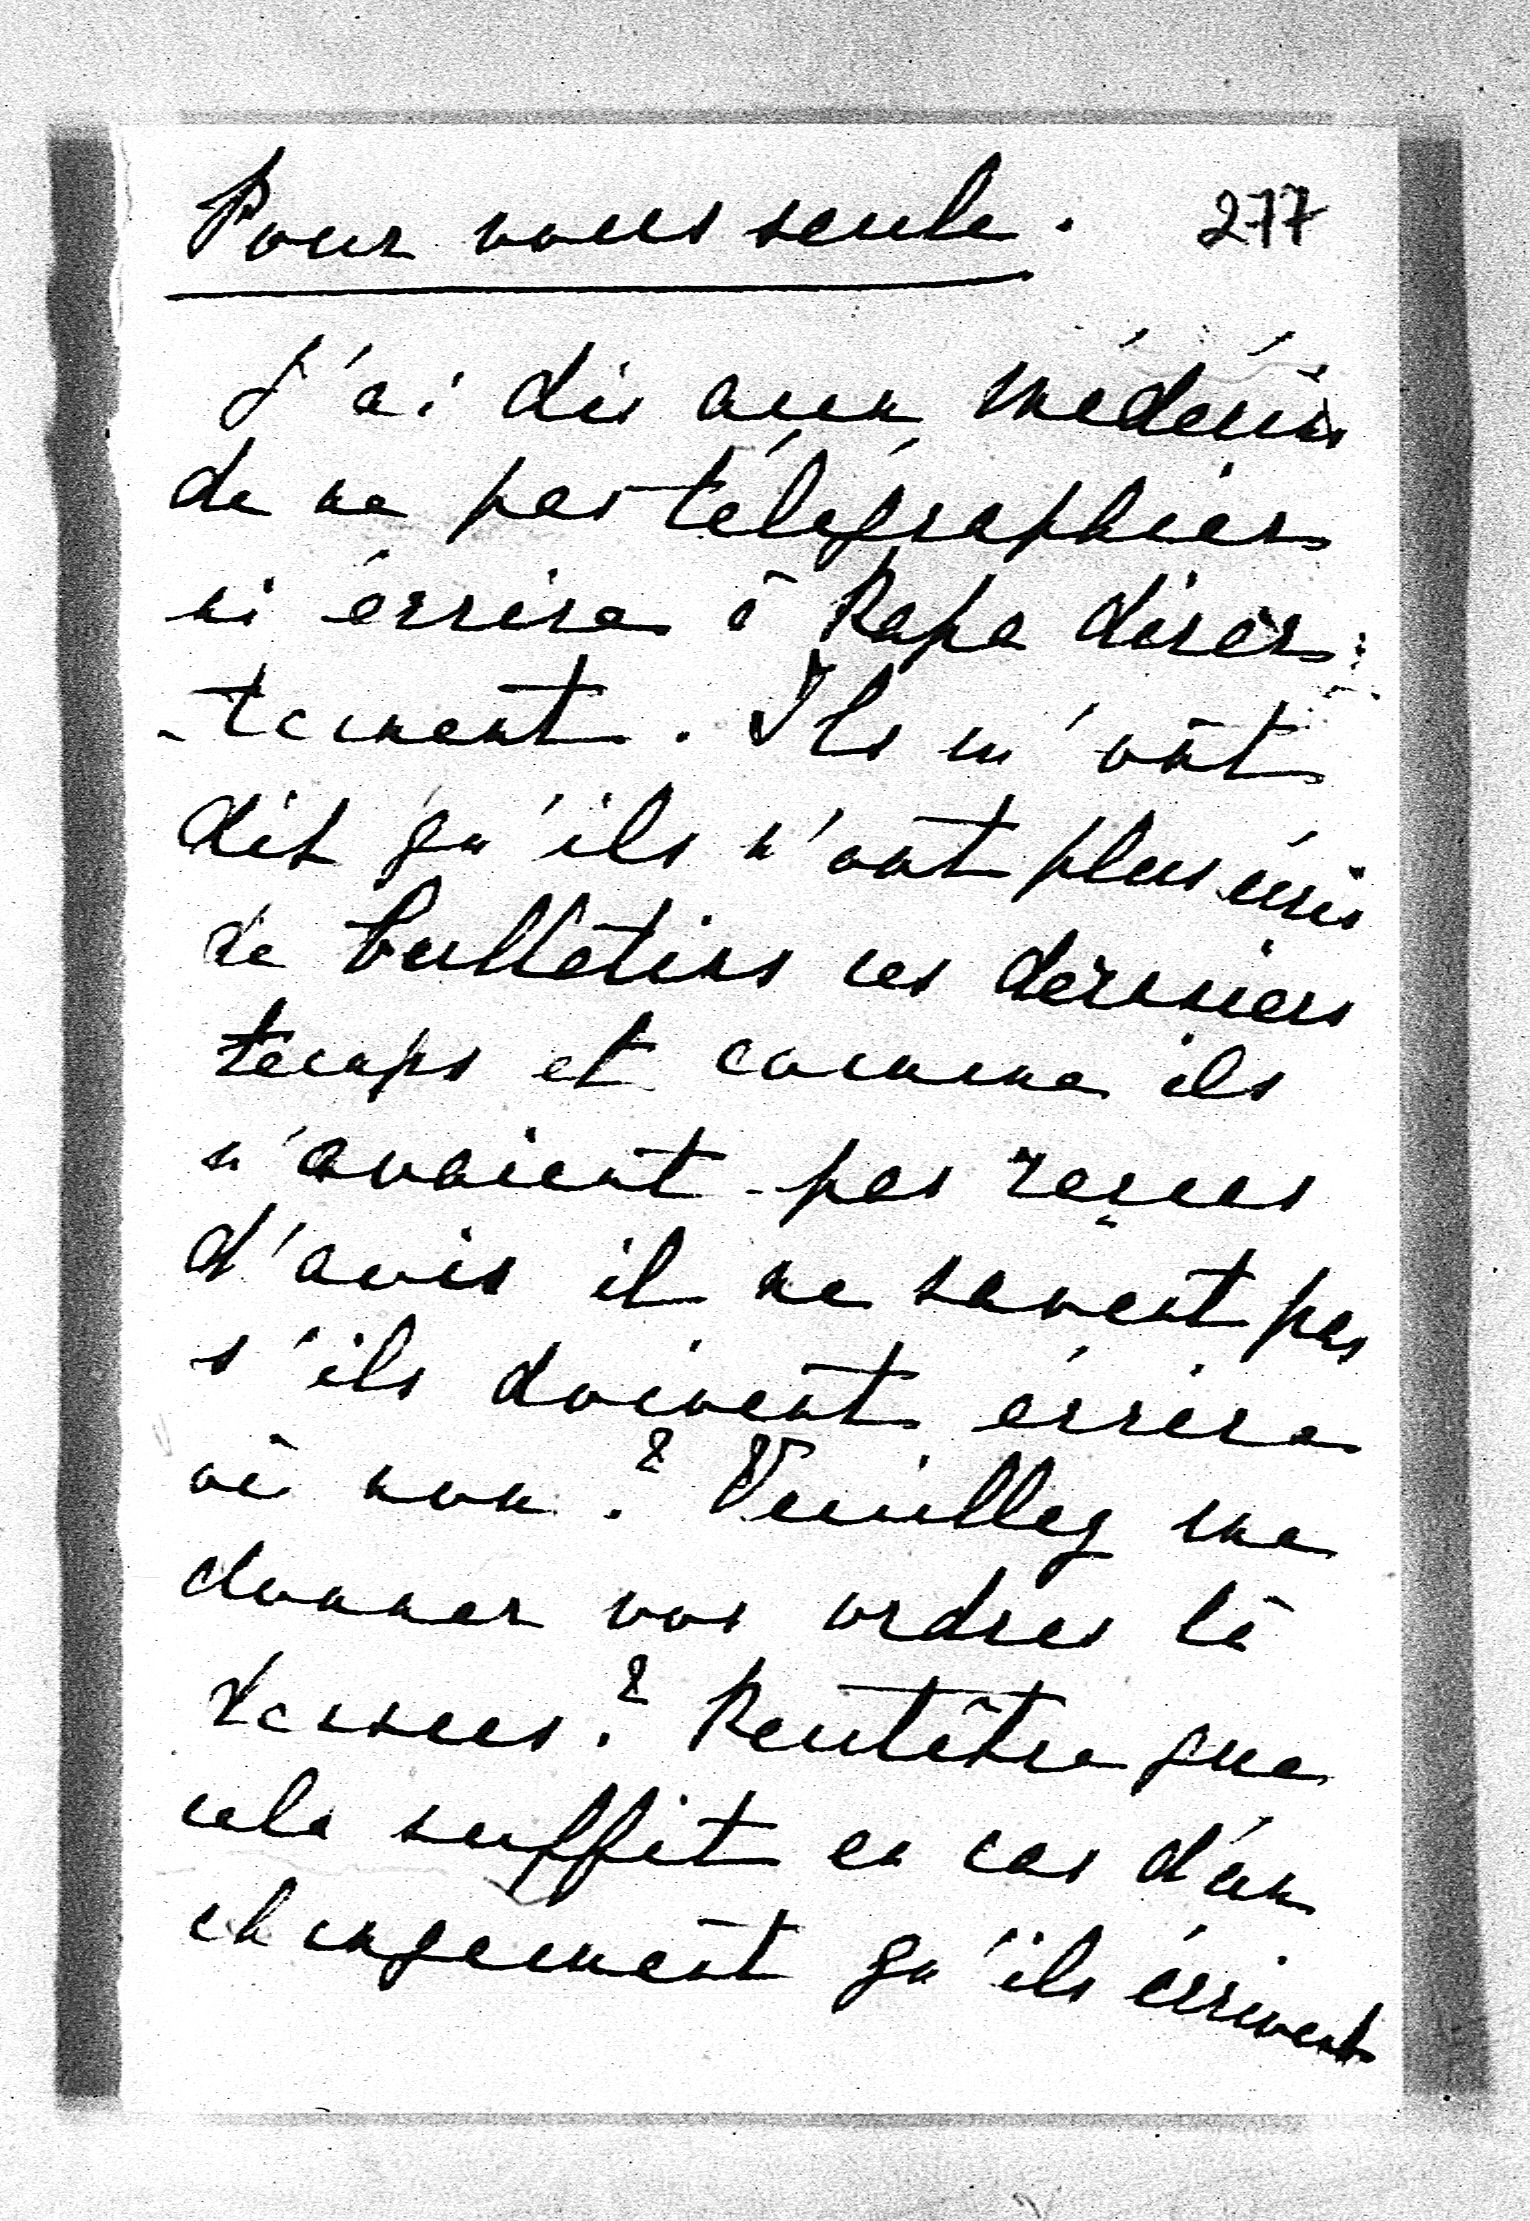 Pour vous seule. 277
J'ai dis aux médecins
de ne pas télégraphier
ni écrire à Papa direc-
-tement. Ils m'ont
dit qu'ils n'ont plus écris
de bulletins ces derniers
temps et comme ils
n'avaient pas reçus
d'avis il ne savent pas
s'ils doivent écrire
où non? Veuillez me
donner vos ordres là
dessus? Peutêtre que
cela suffit en cas d'un
changement qu'ils écrivent